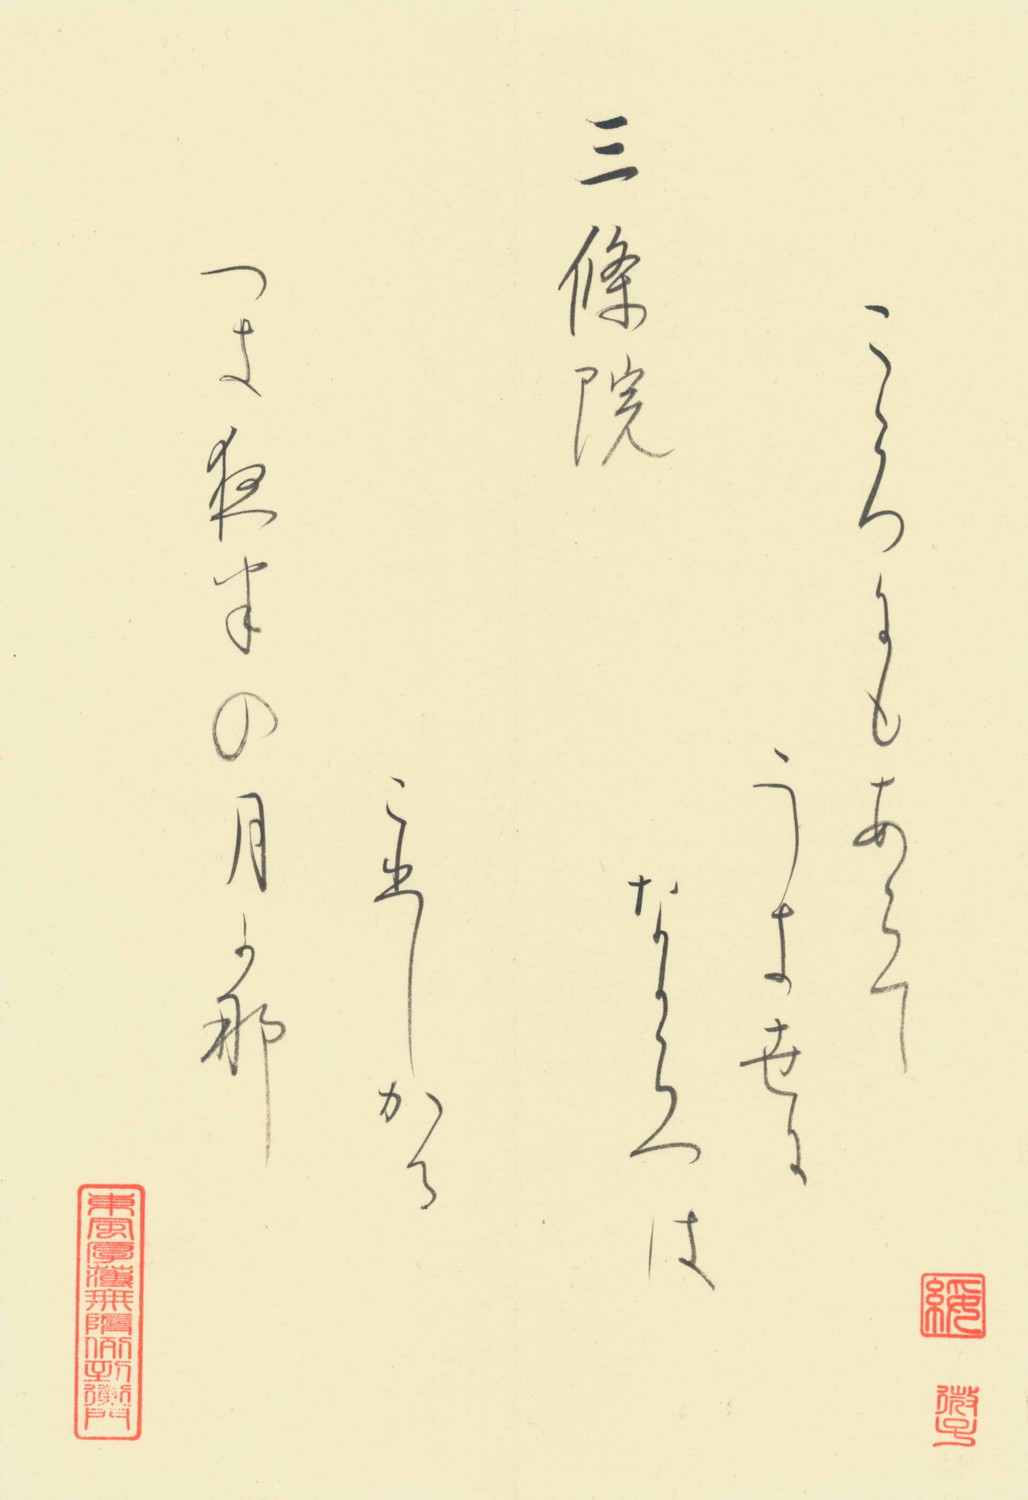 こゝろにもあらて
うき世に
なからへは
三條院
こひしかる
へき夜半の月か那